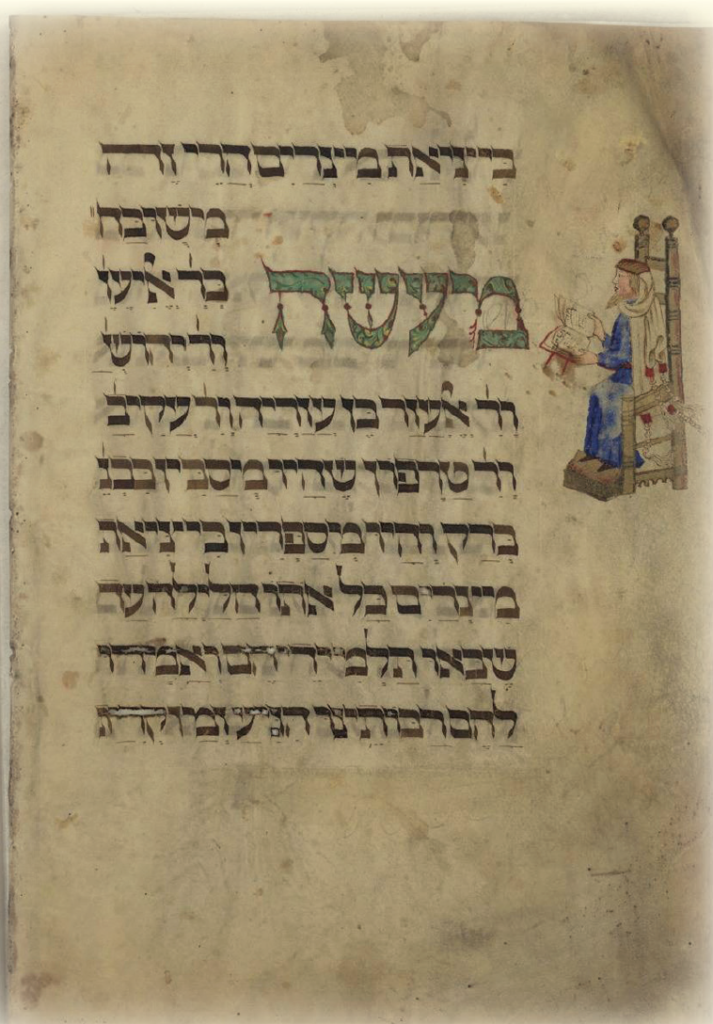 ביציאת מצרים הרי זה
משובח
מעשה
בר׳ אליעז
ור׳ יהוש
ור׳ אלעזר בן עזריה ור׳ עקיב
ור׳ טרפון שהיו מסבין בבני
ברק והיו מספרין ביציאת
מצרים כל אתו הלילה עד
שבאו תלמידיהם ואמרו
להם רבותינו הגיע זמן קרית